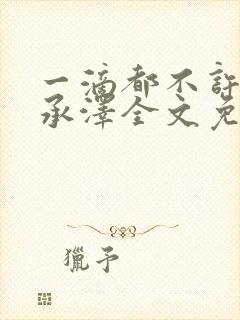 一滴都不許
承澤全文免
獵予